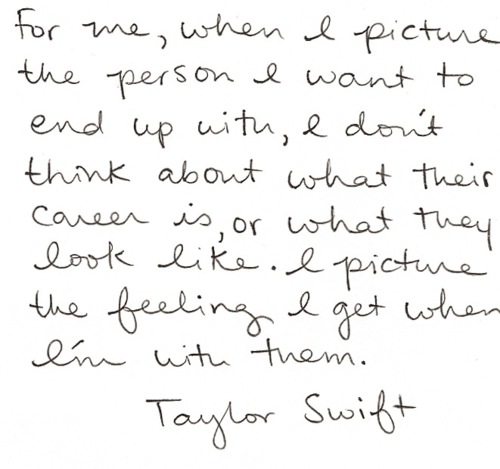 For me, when I picture
the person I want to
end up with, I don't
think about what their
career is, or what they
look like. I picture
the feeling I get when
I'm with them.
Taylor Swift